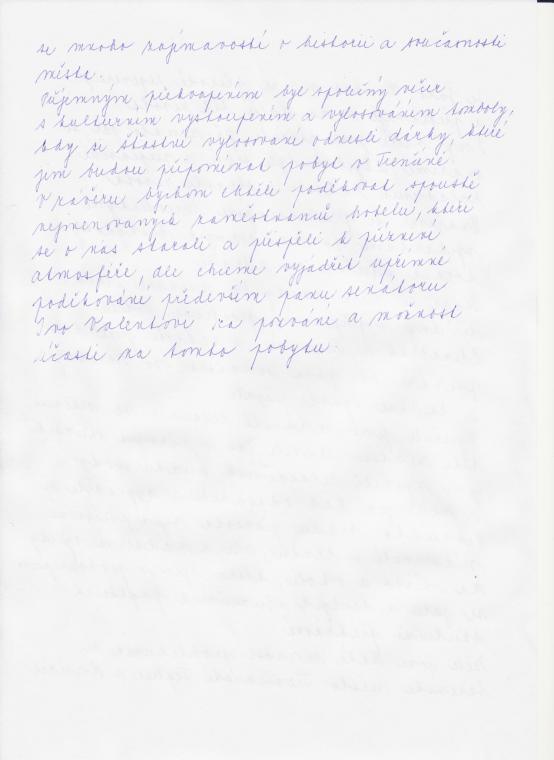 se mnoho zajímavostí o historii a současnosti
města.
Příjemným překvapením byl společný večer
s kulturním vystoupením a vylosováním tomboly,
kdy si šťastní vylosovaní odnesli dárky, které
jim budou připomínat pobyt v Trenčíně
V závěru bychom chtěli poděkovat spoustě
nejmenovaných zaměstnanců hotelu, kteří
se o nás starali a přispěli k příznivé
atmosféře, ale chceme vyjádřit upřímné
poděkování především panu senátoru
Ivo Valentovi za pozvání a možnost
účasti na tomto pobytu.